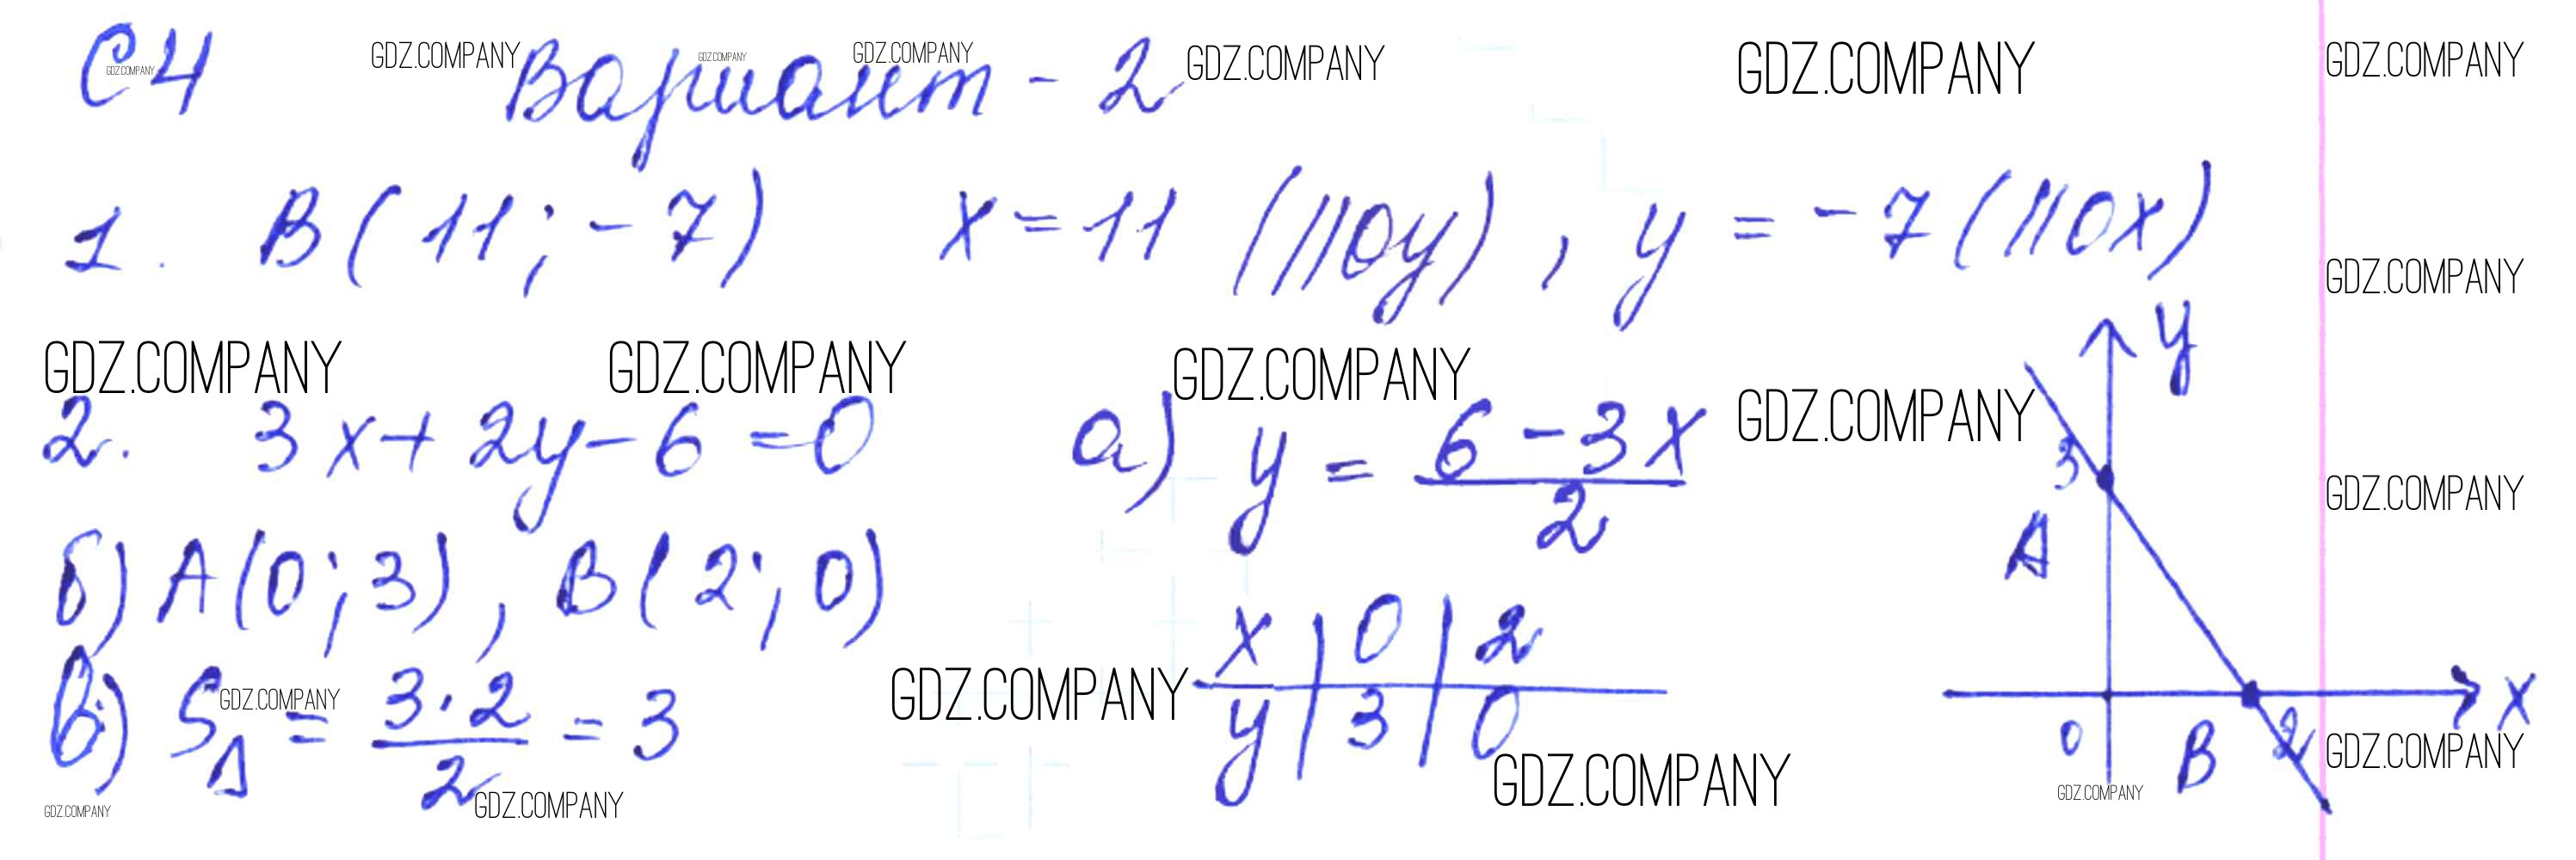 С4 Вариант - 2
1. В(11; -7) x = 11 (||0y), y = -7 (||0x)
2. 3x + 2y - 6 = 0 а) y = (6 - 3x)/2
б) А(0; 3), В(2; 0)
x | 0 | 2
y | 3 | 0
в) S△ = (3·2)/2 = 3
y
3
А
0 В 2 x
GDZ.COMPANY GDZ.COMPANY GDZ.COMPANY GDZ.COMPANY GDZ.COMPANY GDZ.COMPANY GDZ.COMPANY
GDZ.COMPANY
GDZ.COMPANY GDZ.COMPANY GDZ.COMPANY GDZ.COMPANY
GDZ.COMPANY
GDZ.COMPANY GDZ.COMPANY
GDZ.COMPANY GDZ.COMPANY
GDZ.COMPANY GDZ.COMPANY GDZ.COMPANY